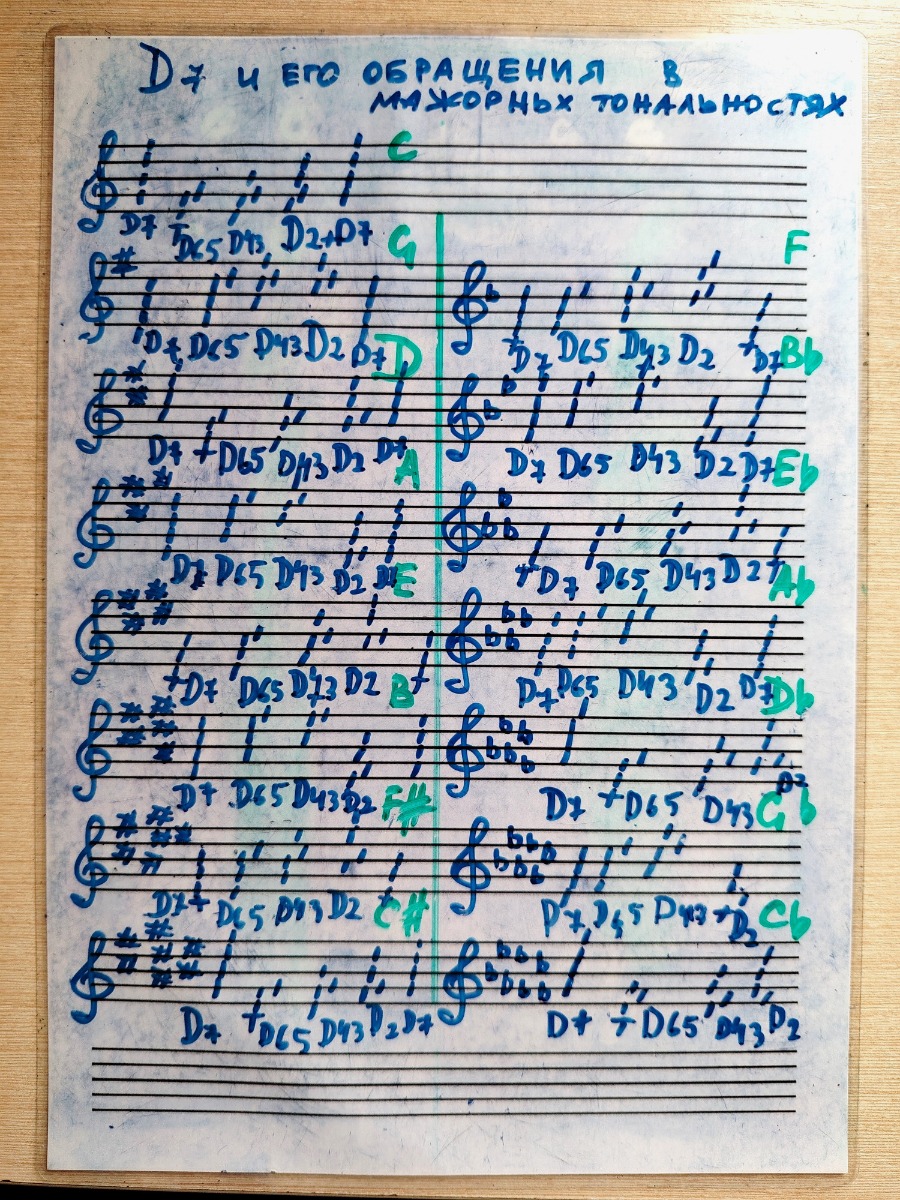 D7 и ЕГО ОБРАЩЕНИЯ В
МАЖОРНЫХ ТОНАЛЬНОСТЯХ
C
D7 D65 D43 D2 D7
G
D7 D65 D43 D2 D7
F
D7 D65 D43 D2 D7
D
D7 D65 D43 D2 D7
Bb
D7 D65 D43 D2 D7
A
D7 D65 D43 D2
Eb
D7 D65 D43 D2
E
D7 D65 D43 D2
Ab
D7 D65 D43 D2 D7
B
D7 D65 D43 D2
Db
D7 D65 D43 D2
F#
D7 D65 D43 D2
Gb
D7 D65 D43 D2
C#
D7 D65 D43 D2 D7
Cb
D7 D65 D43 D2